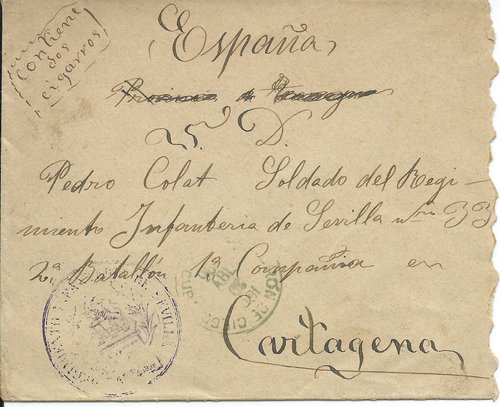 Contiene
dos
cigarros
España
Provincia de
S. D.
Pedro Colat Soldado del Regi-
miento Infanteria de Sevilla nº 33
2º Batallón 1ª Compañia en
Cartagena